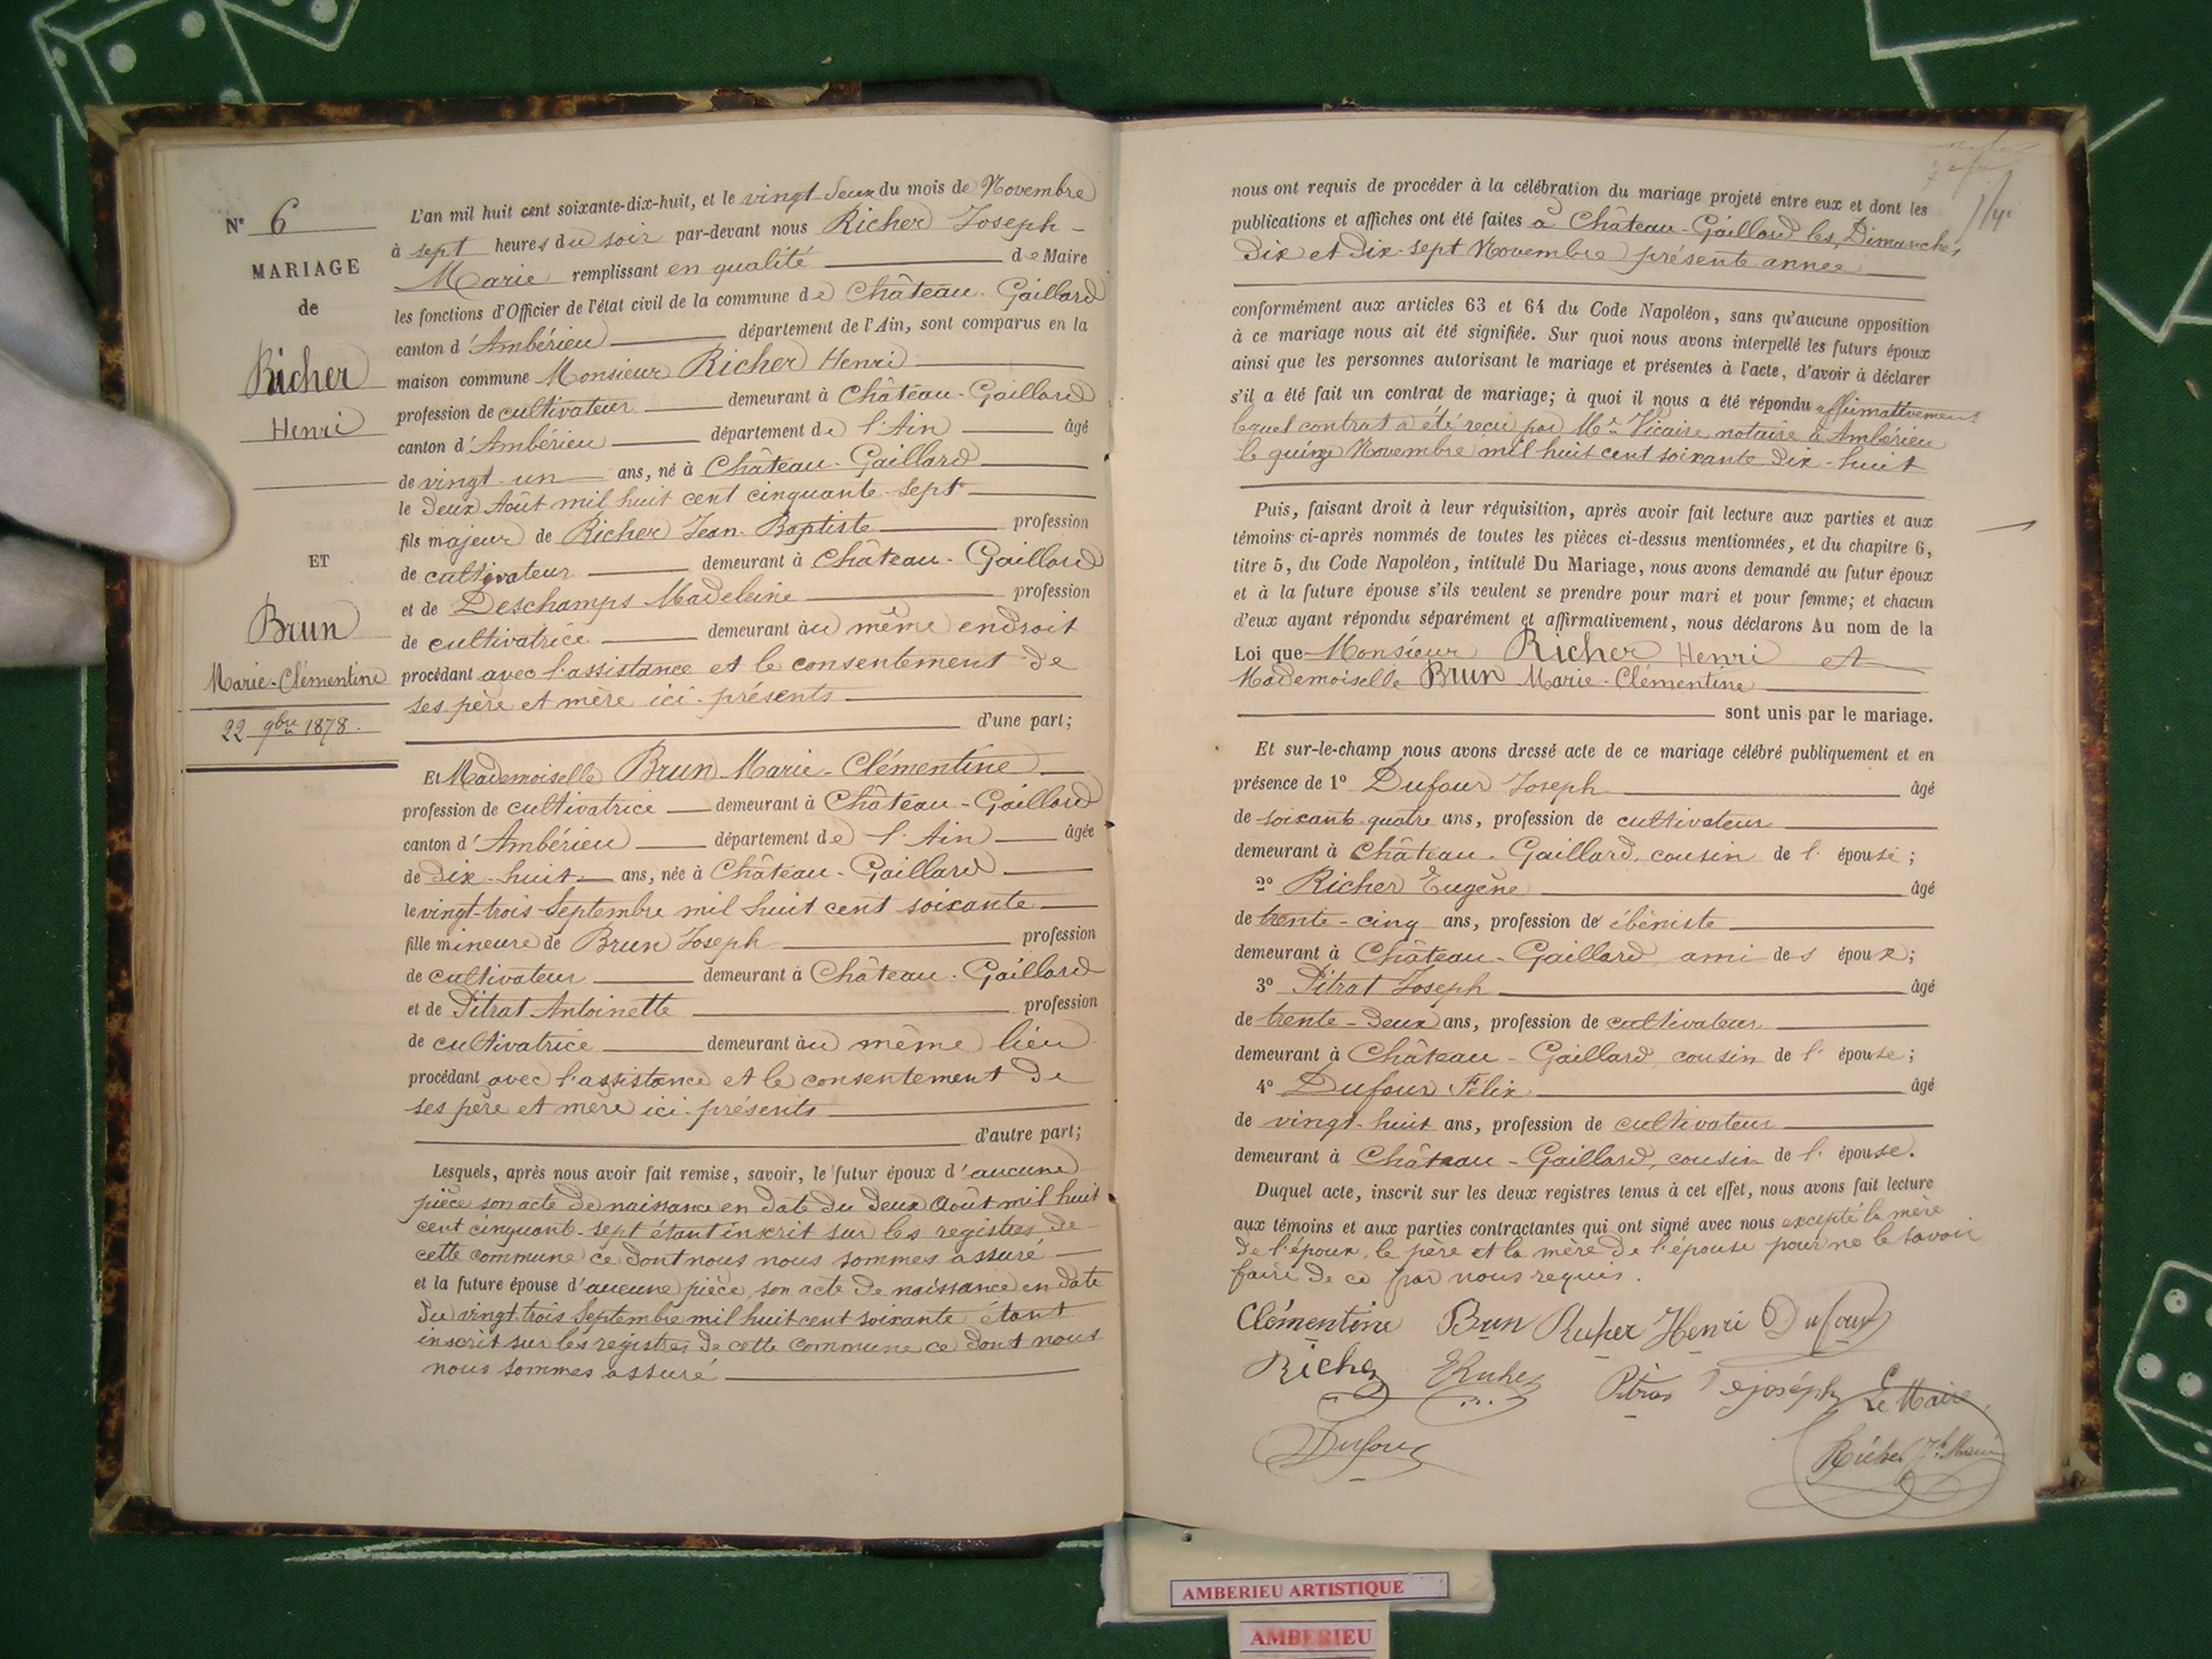 N° 6
MARIAGE
de
Richer
Henri
ET
Brun
Marie-Clémentine
22 9bre 1878.
L'an mil huit cent soixante-dix-huit, et le vingt deux du mois de Novembre
à sept heures du soir par-devant nous Richer Joseph-
Marie remplissant en qualité de Maire
les fonctions d'Officier de l'état civil de la commune de Château-Gaillard
canton d'Ambérieu département de l'Ain, sont comparus en la
maison commune Monsieur Richer Henri
profession de cultivateur demeurant à Château-Gaillard
canton d'Ambérieu département de l'Ain âgé
de vingt-un ans, né à Château-Gaillard
le deux Août mil huit cent cinquante-sept
fils majeur de Richer Jean-Baptiste profession
de cultivateur demeurant à Château-Gaillard
et de Deschamps Madeleine profession
de cultivatrice demeurant au même endroit
procédant avec l'assistance et le consentement de
ses père et mère ici-présents
d'une part;
Et Mademoiselle Brun Marie-Clémentine
profession de cultivatrice demeurant à Château-Gaillard
canton d'Ambérieu département de l'Ain âgée
de dix-huit ans, née à Château-Gaillard
le vingt-trois Septembre mil huit cent soixante
fille mineure de Brun Joseph profession
de cultivateur demeurant à Château-Gaillard
et de Pitrat Antoinette profession
de cultivatrice demeurant au même lieu
procédant avec l'assistance et le consentement de
ses père et mère ici-présents
d'autre part;
Lesquels, après nous avoir fait remise, savoir, le futur époux d'aucune
pièce son acte de naissance en date du deux Août mil huit
cent cinquante-sept étant inscrit sur les registres de
cette commune ce dont nous nous sommes assuré
et la future épouse d'aucune pièce, son acte de naissance en date
du vingt-trois Septembre mil huit cent soixante étant
inscrit sur les registres de cette commune ce dont nous
nous sommes assuré
nous ont requis de procéder à la célébration du mariage projeté entre eux et dont les
publications et affiches ont été faites à Château-Gaillard les Dimanches
dix et dix-sept Novembre présente année
conformément aux articles 63 et 64 du Code Napoléon, sans qu'aucune opposition
à ce mariage nous ait été signifiée. Sur quoi nous avons interpellé les futurs époux
ainsi que les personnes autorisant le mariage et présentes à l'acte, d'avoir à déclarer
s'il a été fait un contrat de mariage; à quoi il nous a été répondu affirmativement
lequel contrat a été reçu par Me Vicaire notaire à Ambérieu
le quinze Novembre mil huit cent soixante dix-huit
Puis, faisant droit à leur réquisition, après avoir fait lecture aux parties et aux
témoins ci-après nommés de toutes les pièces ci-dessus mentionnées, et du chapitre 6,
titre 5, du Code Napoléon, intitulé Du Mariage, nous avons demandé au futur époux
et à la future épouse s'ils veulent se prendre pour mari et pour femme; et chacun
d'eux ayant répondu séparément et affirmativement, nous déclarons Au nom de la
Loi que Monsieur Richer Henri et
Mademoiselle Brun Marie-Clémentine
sont unis par le mariage.
Et sur-le-champ nous avons dressé acte de ce mariage célébré publiquement et en
présence de 1° Dufour Joseph âgé
de soixante quatre ans, profession de cultivateur
demeurant à Château-Gaillard, cousin de l'épouse;
2° Richer Eugène âgé
de trente-cinq ans, profession de ébéniste
demeurant à Château-Gaillard, ami des époux;
3° Pitrat Joseph âgé
de trente-deux ans, profession de cultivateur
demeurant à Château-Gaillard, cousin de l'épouse;
4° Dufour Félix âgé
de vingt-huit ans, profession de cultivateur
demeurant à Château-Gaillard, cousin de l'épouse.
Duquel acte, inscrit sur les deux registres tenus à cet effet, nous avons fait lecture
aux témoins et aux parties contractantes qui ont signé avec nous excepté la mère
de l'époux, le père et la mère de l'épouse pour ne le savoir
faire de ce par nous requis.
Clémentine Brun Richer Henri Dufour
Richer ERicher Pitrat joséph Le Maire
Dufour
Richer Jh Marie
AMBERIEU ARTISTIQUE
AMBERIEU